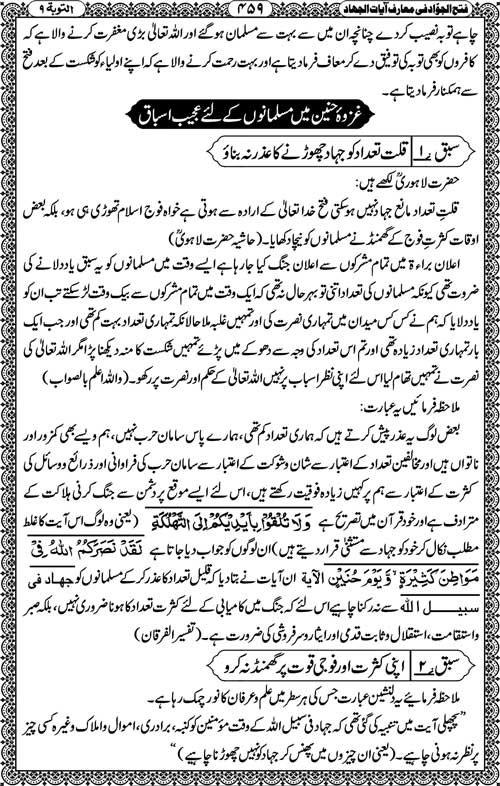 فتح الجوّاد فی معارف آیات الجہاد ۴۵۹ التوبة ۹
چاہے توبہ نصیب کر دے چنانچہ ان میں سے بہت سے مسلمان ہو گئے اور اللہ تعالیٰ بڑی مغفرت کرنے والا ہے کہ
کافروں کو بھی توبہ کی توفیق دے کر معاف فرما دیتا ہے اور بہت رحمت کرنے والا ہے کہ اپنے اولیاء کو شکست کے بعد فتح
سے ہمکنار فرما دیتا ہے۔
غزوۂ حنین میں مسلمانوں کے لئے عجیب اسباق
سبق ۱ قلت تعداد کو جہاد چھوڑنے کا عذر نہ بناؤ
حضرت لاہوریؒ لکھتے ہیں:
قلتِ تعداد مانع جہاد نہیں ہو سکتی فتح خدا تعالیٰ کے ارادہ سے ہوتی ہے خواہ فوج اسلام تھوڑی ہی ہو، بلکہ بعض
اوقات کثرتِ فوج کے گھمنڈ نے مسلمانوں کو نیچا دکھایا۔ (حاشیہ حضرت لاہوریؒ)
اعلان براءۃ میں تمام مشرکوں سے اعلان جنگ کیا جا رہا ہے ایسے وقت میں مسلمانوں کو یہ سبق یاد دلانے کی
ضرورت تھی کیونکہ مسلمانوں کی تعداد اتنی تو بہرحال نہ تھی کہ ایک وقت میں تمام مشرکوں سے بیک وقت لڑ سکتے تب ان کو
یاد دلایا کہ ہم نے کس کس میدان میں تمہاری نصرت کی اور تمہیں غلبہ ملا حالانکہ تمہاری تعداد بہت کم تھی اور جب ایک
بار تمہاری تعداد زیادہ تھی اور تم اس تعداد کی وجہ سے دھوکے میں پڑے تمہیں شکست کا منہ دیکھنا پڑا مگر اللہ تعالیٰ کی
نصرت نے تمہیں تھام لیا اس لئے اپنی نظر اسباب پر نہیں اللہ تعالیٰ کے حکم اور نصرت پر رکھو۔ (واللہ اعلم بالصواب)
ملاحظہ فرمائیں یہ عبارت:
بعض لوگ یہ عذر پیش کرتے ہیں کہ ہماری تعداد کم تھی، ہمارے پاس سامان حرب نہیں، ہم ویسے بھی کمزور اور
ناتواں ہیں اور مخالفین تعداد کے اعتبار سے شان و شوکت کے اعتبار سے سامان حرب کی فراوانی اور ذرائع و وسائل کی
کثرت کے اعتبار سے ہم پر کہیں زیادہ فوقیت رکھتے ہیں، اس لئے ایسے موقع پر دشمن سے جنگ کرنی ہلاکت کے
مترادف ہے اور خود قرآن میں تصریح ہے وَلَا تُلْقُوْا بِاَيْدِيْكُمْ اِلَى التَّهْلُكَةِ (یعنی وہ لوگ اس آیت کا غلط
مطلب نکال کر خود کو جہاد سے مستثنیٰ قرار دیتے ہیں) ان لوگوں کو جواب دیا جاتا ہے لَقَدْ نَصَرَكُمُ اللّٰهُ فِيْ
مَوَاطِنَ كَثِيْرَةٍ وَّيَوْمَ حُنَيْنٍ الآیة ان آیات نے بتا دیا کہ قلیل تعداد کا عذر کر کے مسلمانوں کو جہاد فی
سبیل اللہ سے نہ رکنا چاہیے اس لئے کہ جنگ میں کامیابی کے لئے کثرت تعداد کا ہونا ضروری نہیں، بلکہ صبر
و استقامت، استقلال و ثابت قدمی اور ایثار و سرفروشی کی ضرورت ہے۔ (تفسیر الفرقان)
سبق ۲ اپنی کثرت اور فوجی قوت پر گھمنڈ نہ کرو
ملاحظہ فرمائیے یہ دلنشین عبارت جس کی ہر سطر میں علم و عرفان کا نور چمک رہا ہے۔
”پچھلی آیت میں تنبیہ کی گئی تھی کہ جہاد فی سبیل اللہ کے وقت مؤمنین کو کنبہ، برادری، اموال و املاک وغیرہ کسی چیز
پر نظر نہ ہونی چاہیے۔ (یعنی ان چیزوں میں پھنس کر جہاد کو نہیں چھوڑنا چاہیے)“